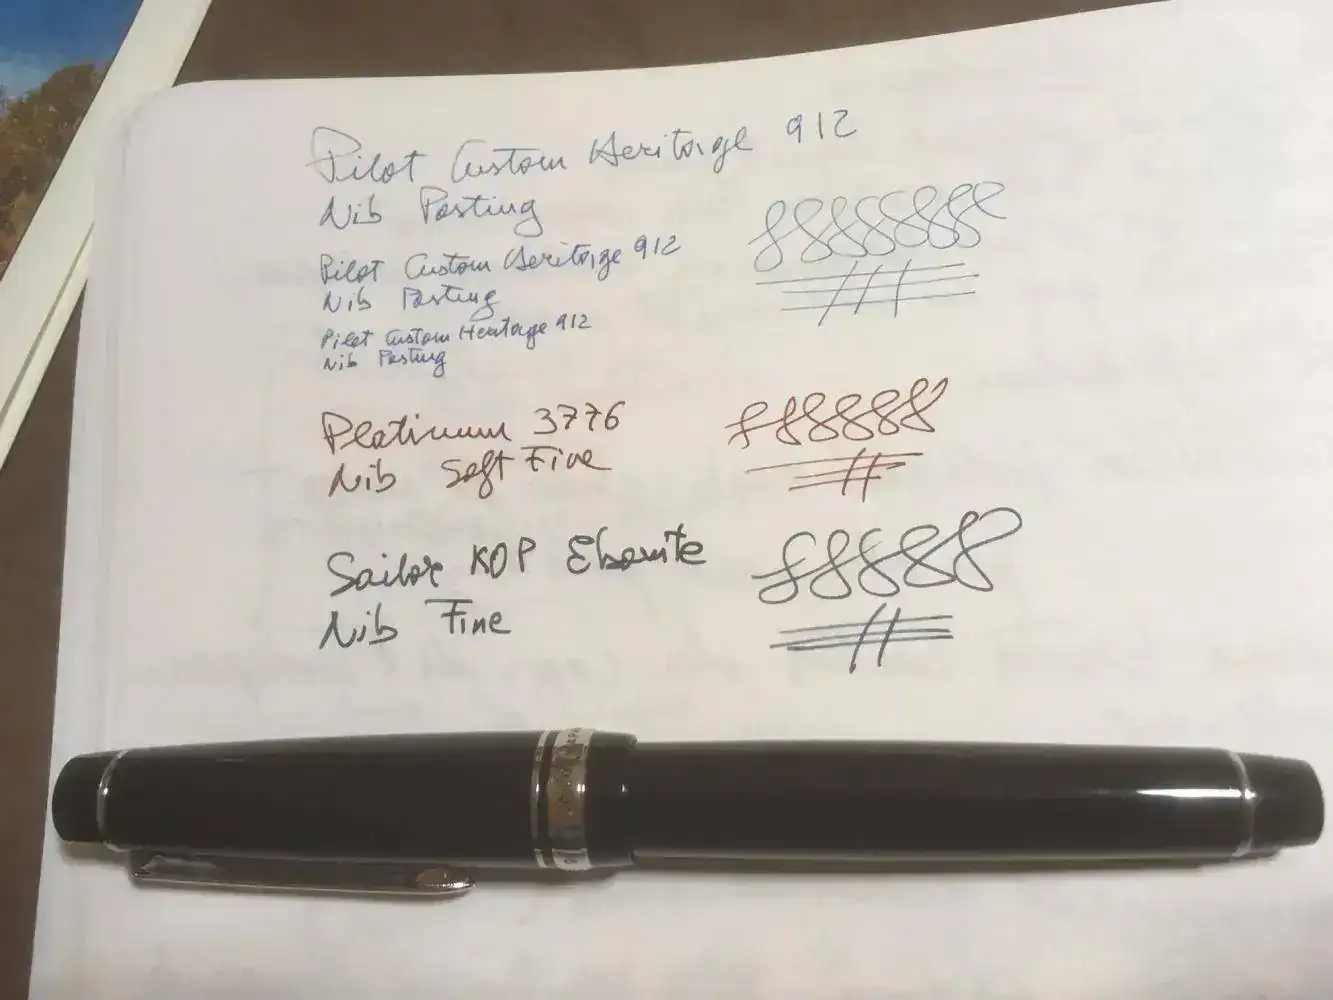 Pilot Custom Heritage 912
Nib Posting
Pilot Custom Heritage 912
Nib Posting
Pilot Custom Heritage 912
Nib Posting
Platinum 3776
Nib Soft Fine
Sailor KOP Ebonite
Nib Fine